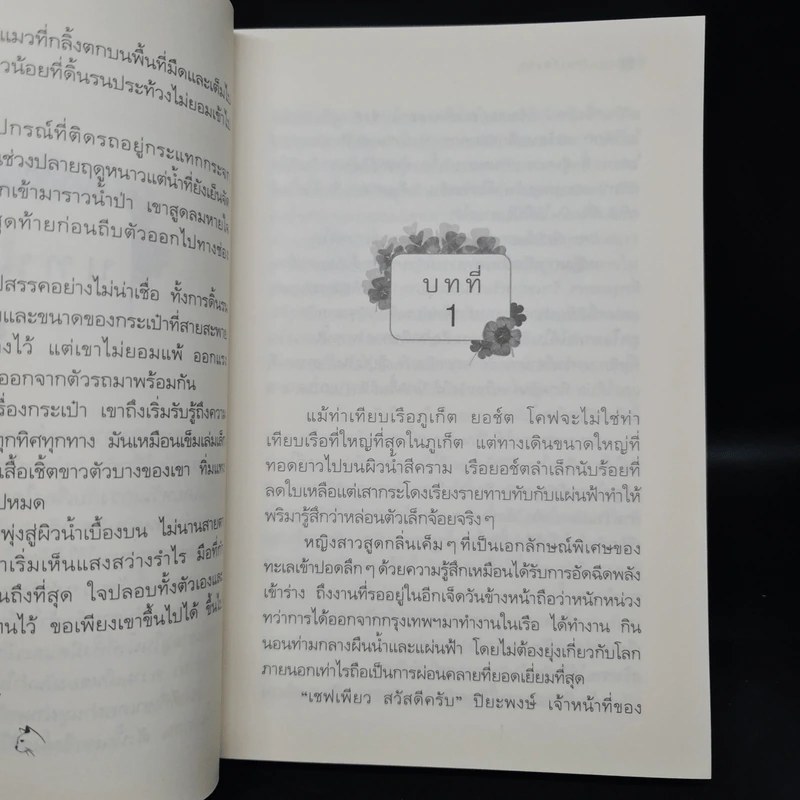 แมวที่กลิ้งตกบนพื้นที่มืดและเต็มไป
น้อยที่ดิ้นรนประท้วงไม่ยอมเข้าไป
ปกรณ์ที่ติดรถอยู่กระแทกกระจก
ช่วงปลายฤดูหนาวแต่น้ำที่ยังเย็นจัด
เข้ามาราวน้ำป่า เขาสูดลมหายใจ
สุดท้ายก่อนถีบตัวออกไปทางช่อง
ปสรรคอย่างไม่น่าเชื่อ ทั้งการดิ้นรน
และขนาดของกระเป๋าที่สายสะพาย
ไว้ แต่เขาไม่ยอมแพ้ ออกแรง
ออกจากตัวรถมาพร้อมกัน
รื่องกระเป๋า เขาถึงเริ่มรับรู้ถึงความ
ทุกทิศทุกทาง มันเหมือนเข็มเล่มเล็ก
เสื้อเชิ้ตขาวตัวบางของเขา ทิ่มแทง
ปหมด
พุ่งสู่ผิวน้ำเบื้องบน ไม่นานสายตา
าเริ่มเห็นแสงสว่างรำไร มือที่กำ
นถึงที่สุด ใจปลอบทั้งตัวเองและ
านไว้ ขอเพียงเขาขึ้นไปได้ ขึ้นไป
บทที่
1
แม้ท่าเทียบเรือภูเก็ต ยอช์ต โคฟจะไม่ใช่ท่า
เทียบเรือที่ใหญ่ที่สุดในภูเก็ต แต่ทางเดินขนาดใหญ่ที่
ทอดยาวไปบนผิวน้ำสีคราม เรือยอช์ตลำเล็กนับร้อยที่
ลดใบเหลือแต่เสากระโดงเรียงรายทาบทับกับแผ่นฟ้าทำให้
พริมารู้สึกว่าหล่อนตัวเล็กจ้อยจริงๆ
หญิงสาวสูดกลิ่นเค็มๆ ที่เป็นเอกลักษณ์พิเศษของ
ทะเลเข้าปอดลึกๆ ด้วยความรู้สึกเหมือนได้รับการอัดฉีดพลัง
เข้าร่าง ถึงงานที่รออยู่ในอีกเจ็ดวันข้างหน้าถือว่าหนักหน่วง
ทว่าการได้ออกจากกรุงเทพฯมาทำงานในเรือ ได้ทำงาน กิน
นอนท่ามกลางผืนน้ำและแผ่นฟ้า โดยไม่ต้องยุ่งเกี่ยวกับโลก
ภายนอกเท่าไรถือเป็นการผ่อนคลายที่ยอดเยี่ยมที่สุด
“เชฟเพียว สวัสดีครับ” ปิยะพงษ์ เจ้าหน้าที่ของ